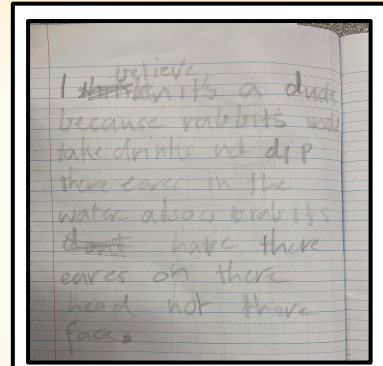 believe
I think it's a duck
because rabbits would
take drinks not dip
there eares in the
water alsow brabits
dont have there
eares on there
head not there
face.